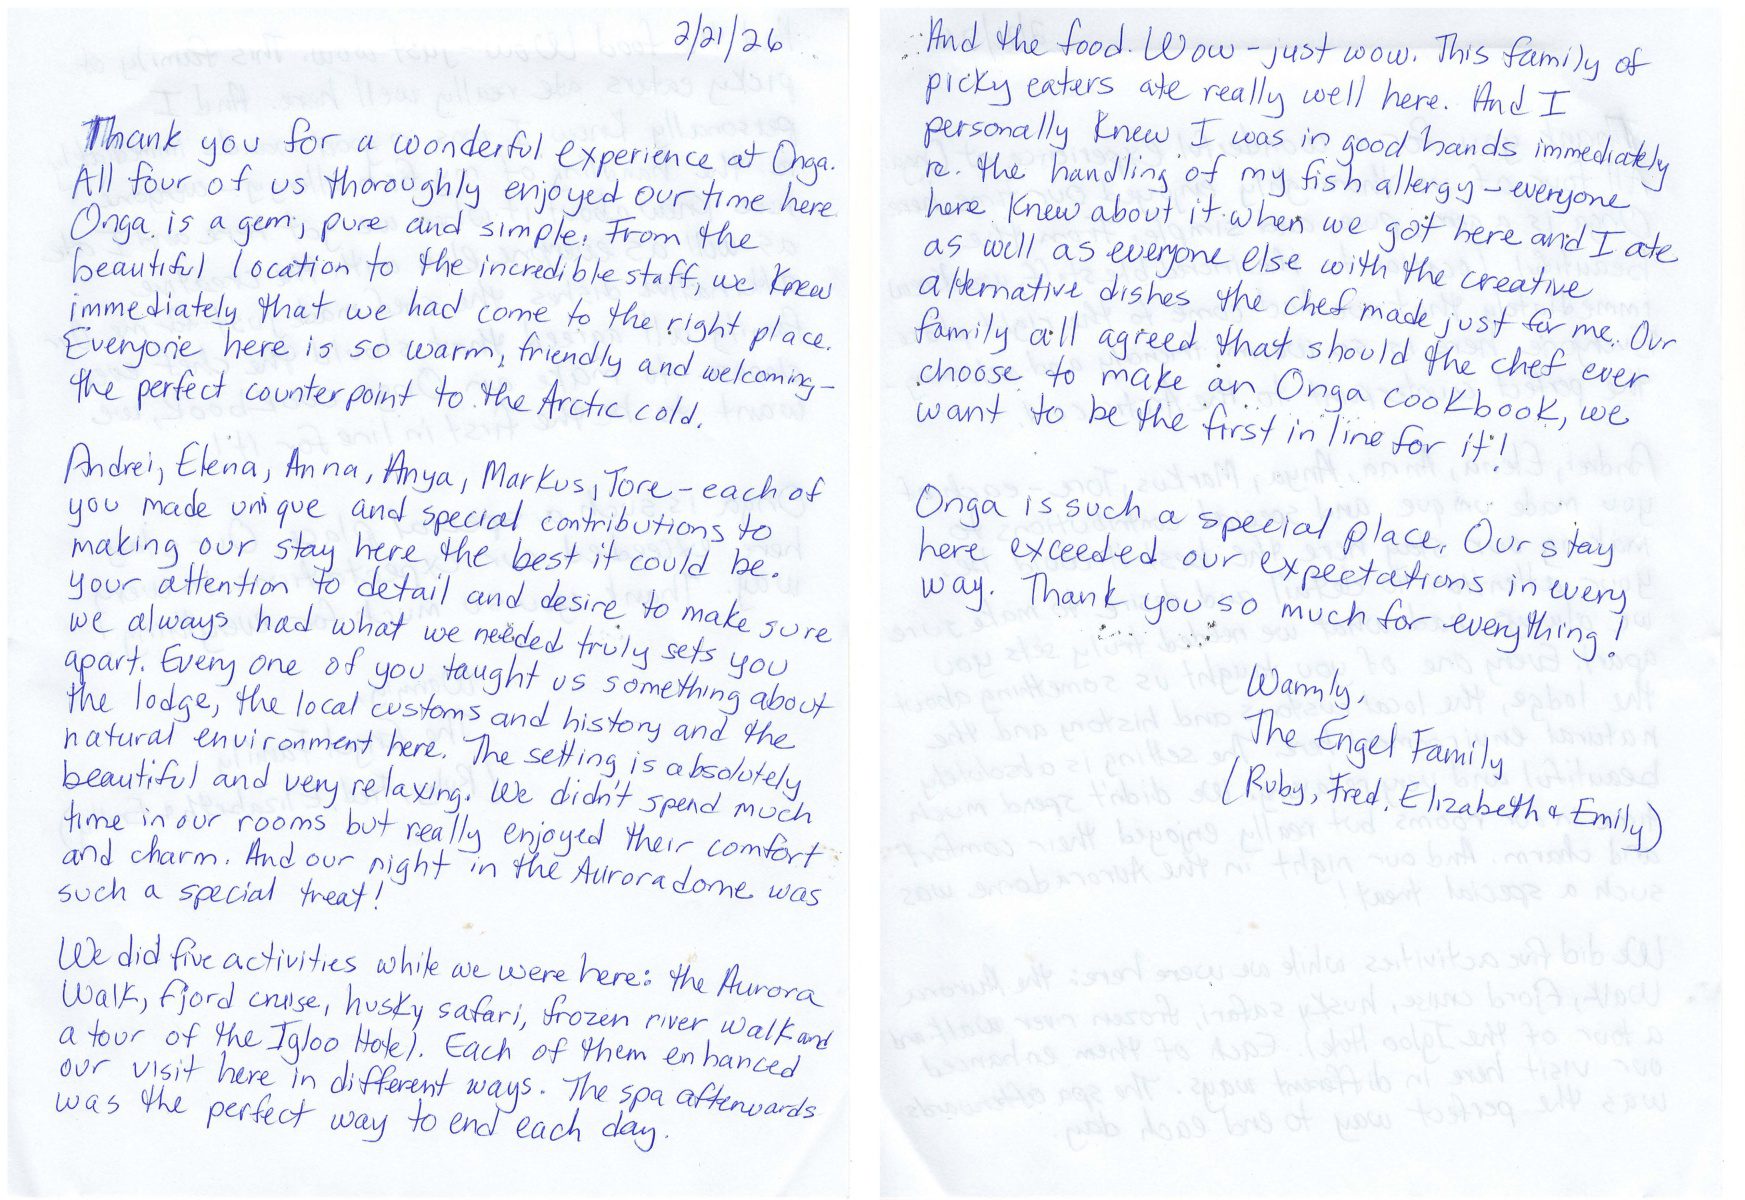 2/21/26
Thank you for a wonderful experience at Onga.
All four of us thoroughly enjoyed our time here.
Onga is a gem, pure and simple. From the
beautiful location to the incredible staff, we knew
immediately that we had come to the right place.
Everyone here is so warm, friendly and welcoming –
the perfect counterpoint to the Arctic cold.
Andrei, Elena, Anna, Anya, Markus, Tore – each of
you made unique and special contributions to
making our stay here the best it could be.
Your attention to detail and desire to make sure
we always had what we needed truly sets you
apart. Every one of you taught us something about
the lodge, the local customs and history and the
natural environment here. The setting is absolutely
beautiful and very relaxing. We didn't spend much
time in our rooms but really enjoyed their comfort
and charm. And our night in the Aurora dome was
such a special treat!
We did five activities while we were here: the Aurora
Walk, fjord cruise, husky safari, frozen river walk and
a tour of the Igloo Hotel. Each of them enhanced
our visit here in different ways. The spa afterwards
was the perfect way to end each day.
And the food. Wow – just wow. This family of
picky eaters ate really well here. And I
personally knew I was in good hands immediately
re. the handling of my fish allergy – everyone
here knew about it when we got here and I ate
as well as everyone else with the creative
alternative dishes the chef made just for me. Our
family all agreed that should the chef ever
choose to make an Onga cookbook, we
want to be the first in line for it!
Onga is such a special place. Our stay
here exceeded our expectations in every
way. Thank you so much for everything!
Warmly,
The Engel Family
(Ruby, Fred, Elizabeth & Emily)